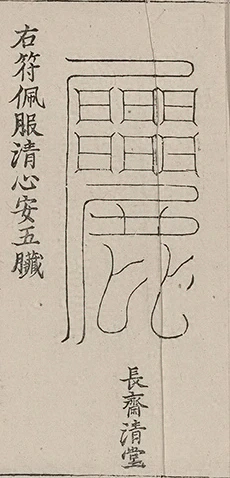 右符佩服清心安五臟
長齋清堂